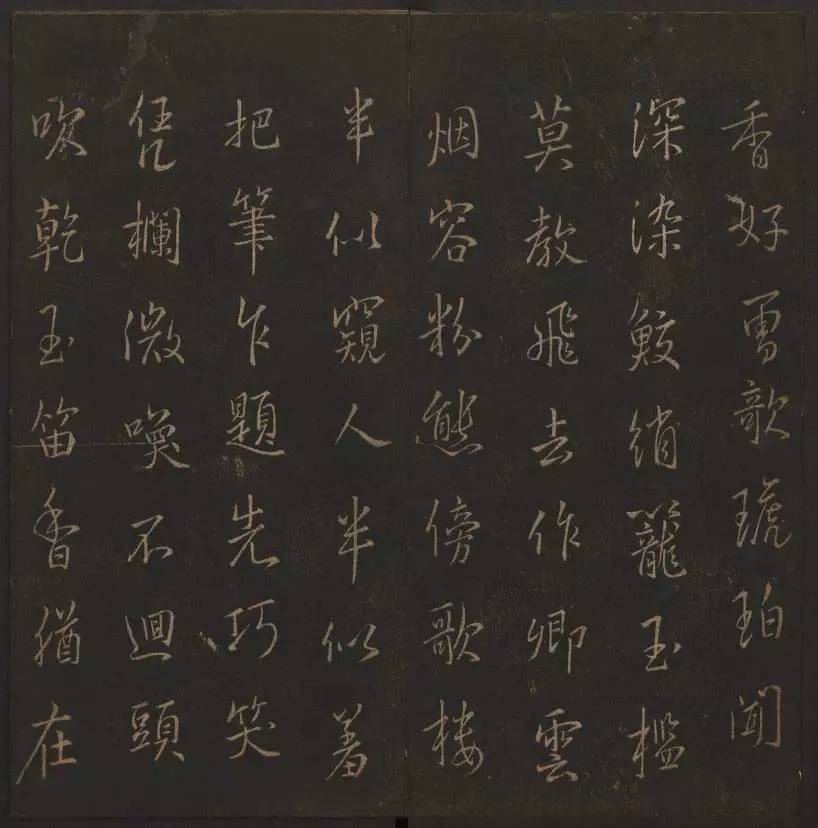 香好琥珀聞
深染鮫綃籠玉檻
莫教飛去作卿雲
烟容粉態傍歌樓
半似窺人半似羞
把筆乍題先巧笑
凭欄微喚不迴頭
乾玉笛香猶在